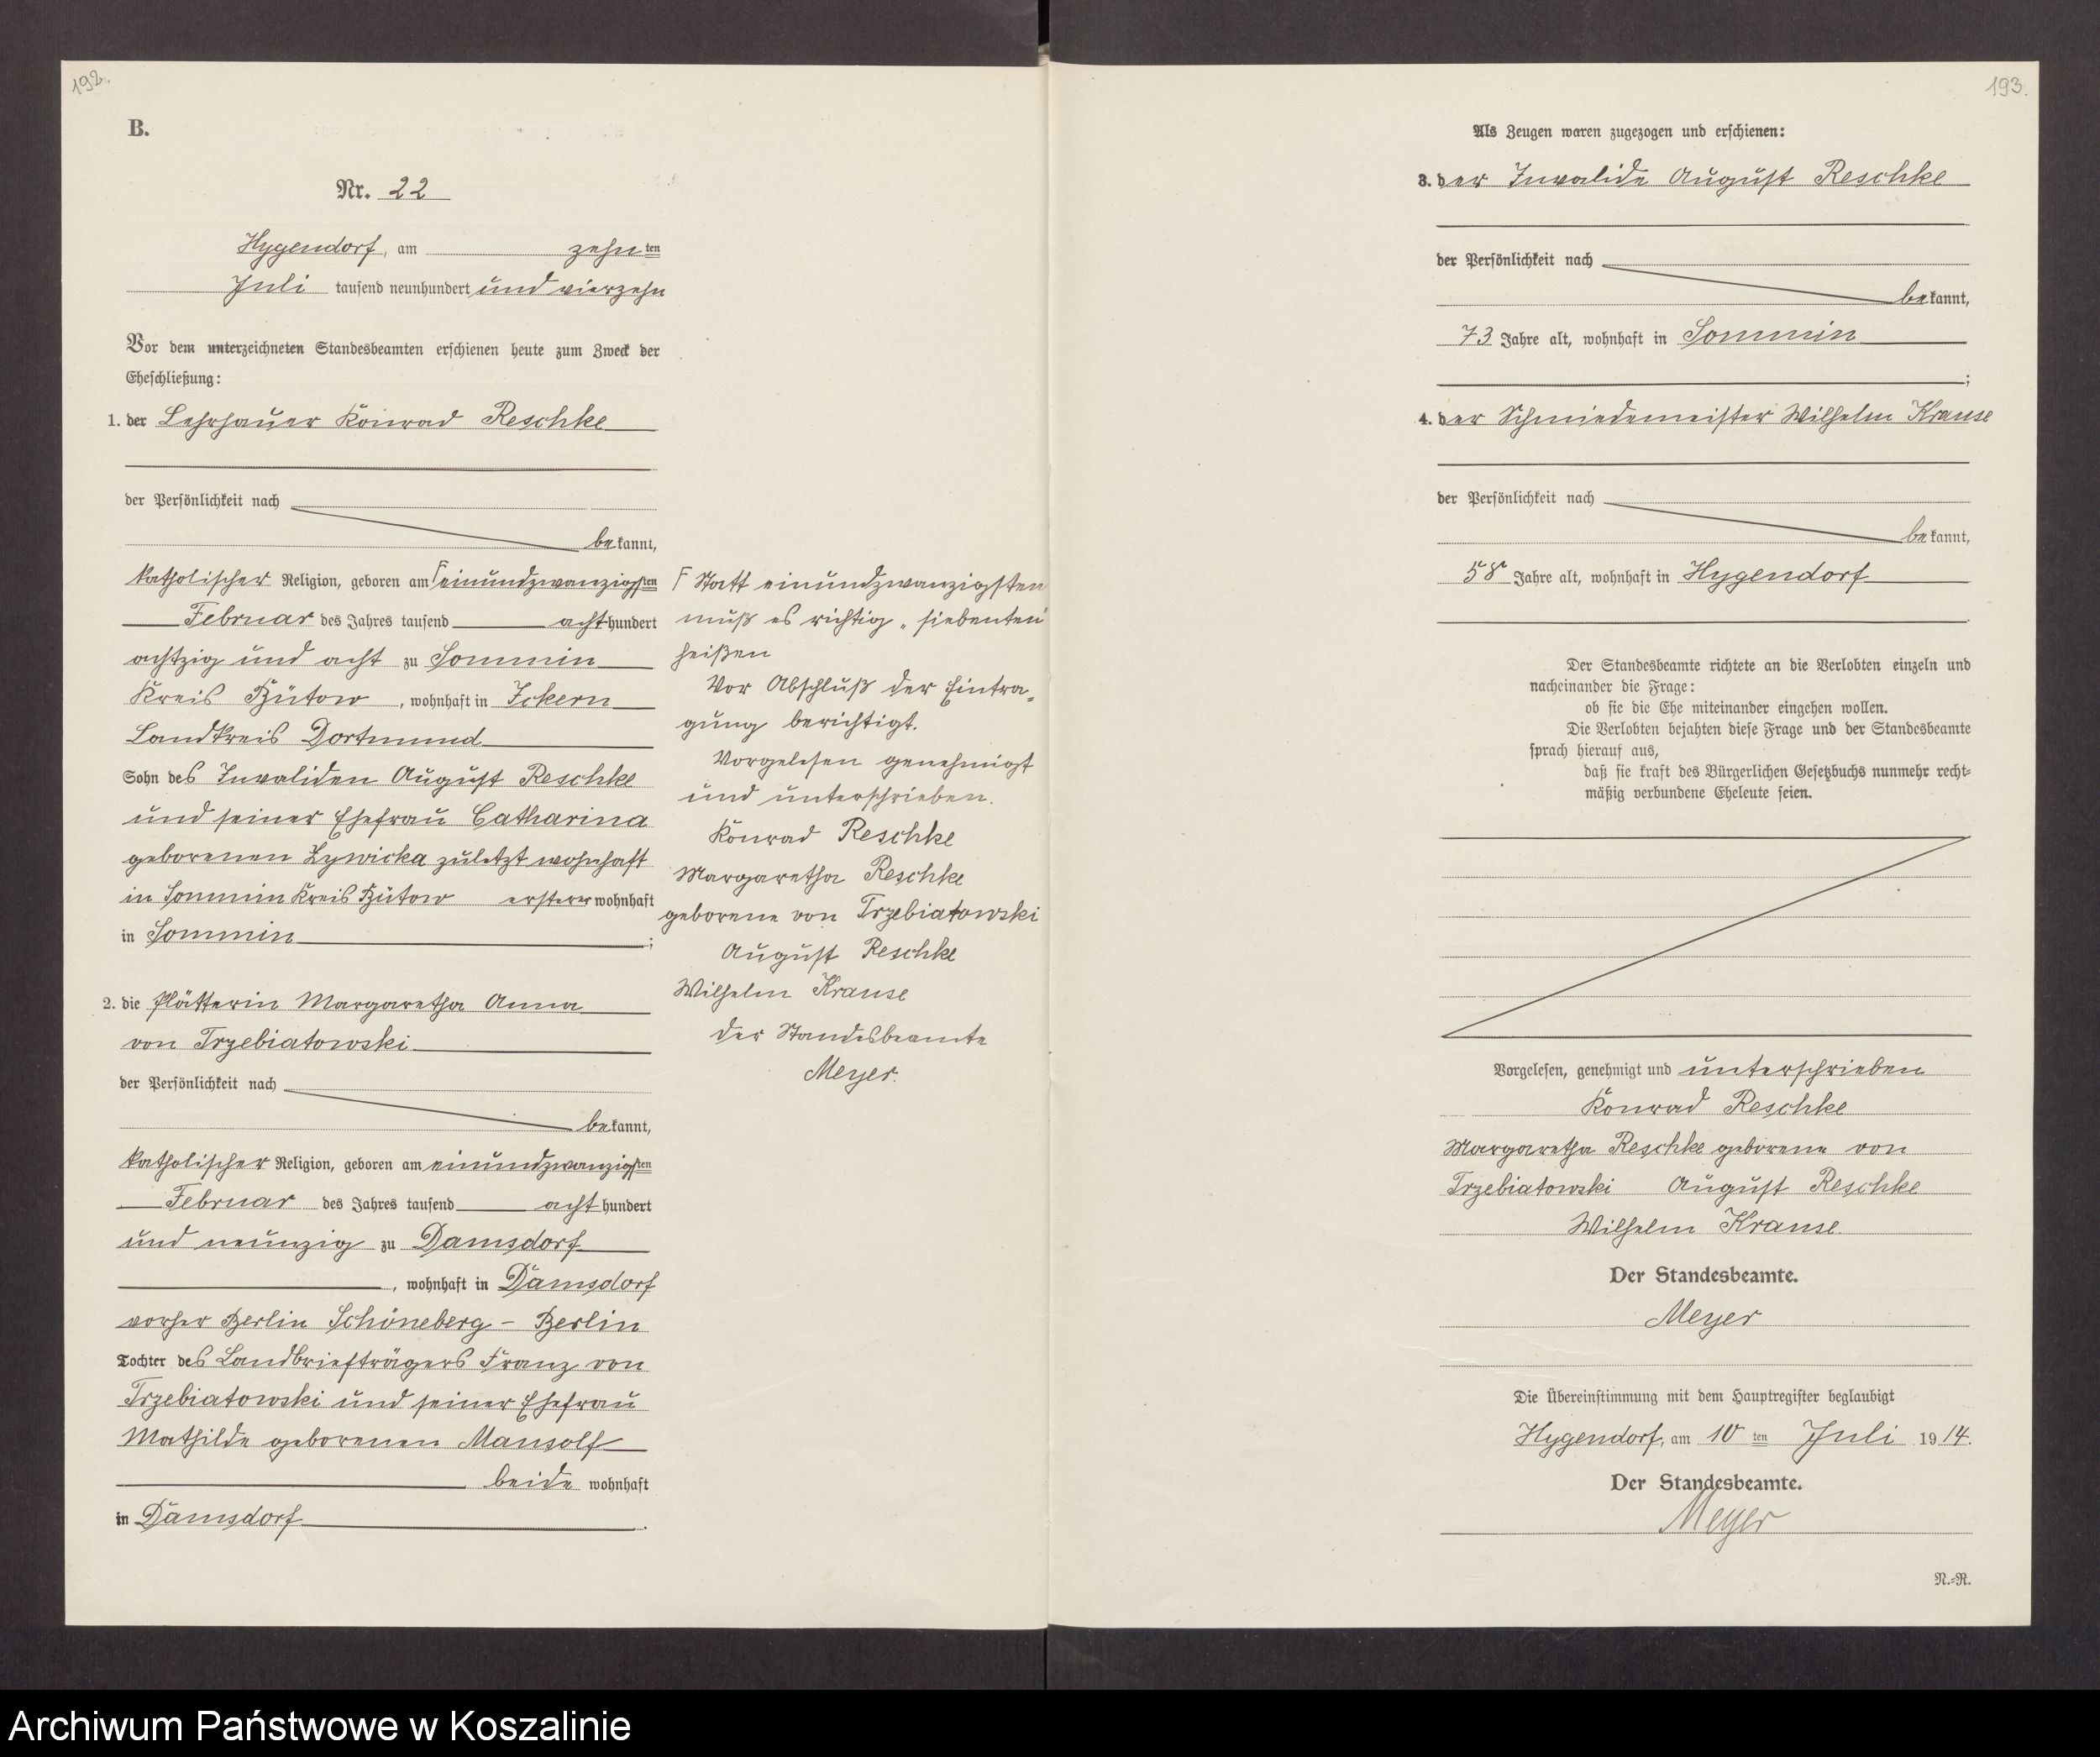 192.
B.
Nr. 22
Hygendorf, am zehnten
Juli tausend neunhundert und vierzehn
Vor dem unterzeichneten Standesbeamten erschienen heute zum Zweck der
Eheschließung:
1. der Lehrhauer Konrad Reschke
der Persönlichkeit nach
bekannt,
katholischer Religion, geboren am Γ einundzwanzigsten
Februar des Jahres tausend achthundert
achtzig und acht zu Sommin
Kreis Bütow, wohnhaft in Ickern
Landkreis Dortmund
Sohn des Invaliden August Reschke
und seiner Ehefrau Catharina
geborenen Zywicka zuletzt wohnhaft
in Sommin Kreis Bütow ersterer wohnhaft
in Sommin;
2. die Plätterin Margaretha Anna
von Trzebiatowski
der Persönlichkeit nach
bekannt,
katholischer Religion, geboren am einundzwanzigsten
Februar des Jahres tausend achthundert
und neunzig zu Damsdorf
, wohnhaft in Damsdorf
vorher Berlin Schöneberg - Berlin
Tochter des Landbriefträgers Franz von
Trzebiatowski und seiner Ehefrau
Mathilde geborenen Mansolf
beide wohnhaft
in Damsdorf.
Γ Statt einundzwanzigsten
muß es richtig „siebenten"
heißen
Vor Abschluß der Eintra=
gung berichtigt.
Vorgelesen genehmigt
und unterschrieben.
Konrad Reschke
Margaretha Reschke
geborene von Trzebiatowski
August Reschke
Wilhelm Krause
Der Standesbeamte
Meyer.
193.
Als Zeugen waren zugezogen und erschienen:
3. der Invalide August Reschke
der Persönlichkeit nach
bekannt,
73 Jahre alt, wohnhaft in Sommin
;
4. der Schmiedemeister Wilhelm Krause
der Persönlichkeit nach
bekannt,
58 Jahre alt, wohnhaft in Hygendorf
.
Der Standesbeamte richtete an die Verlobten einzeln und
nacheinander die Frage:
ob sie die Ehe miteinander eingehen wollen.
Die Verlobten bejahten diese Frage und der Standesbeamte
sprach hierauf aus,
daß sie kraft des Bürgerlichen Gesetzbuchs nunmehr recht=
mäßig verbundene Eheleute seien.
Vorgelesen, genehmigt und unterschrieben
Konrad Reschke
Margaretha Reschke geborene von
Trzebiatowski August Reschke
Wilhelm Krause
Der Standesbeamte.
Meyer
Die Übereinstimmung mit dem Hauptregister beglaubigt
Hygendorf, am 10ten Juli 1914.
Der Standesbeamte.
Meyer
N.=R.
Archiwum Państwowe w Koszalinie